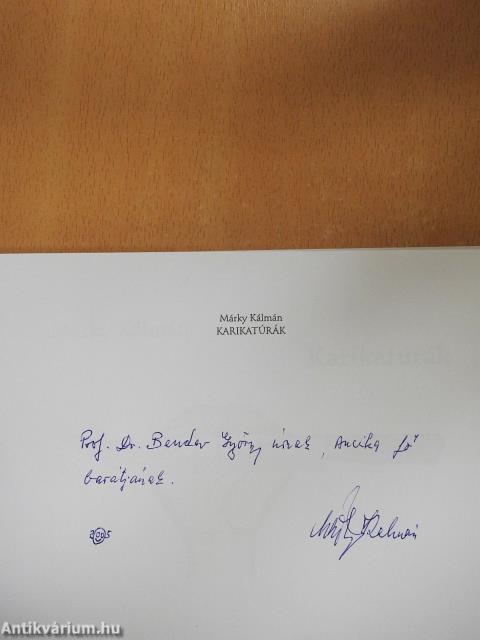 Márky Kálmán
KARIKATÚRÁK
Karikatúrák
Prof. Dr. Bender György úrnak, Ancika jó
barátjának.
2005
Márky Kálmán
Antikvárium.hu